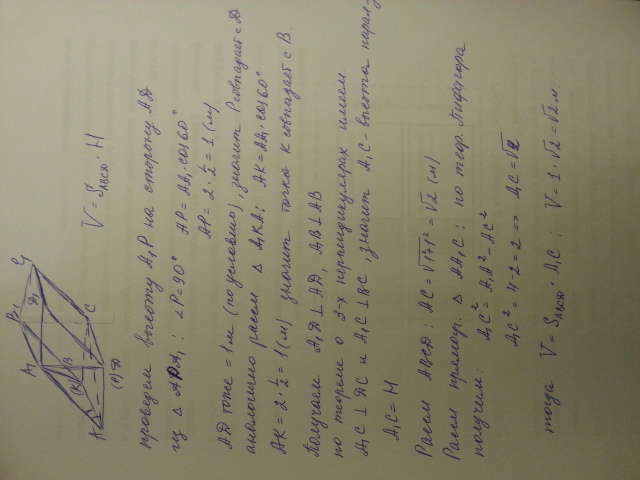 A₁ B₁ D₁ C₁ A (K) B (P) D C
V = S_ABCD · H
проведем высоту A₁P на сторону AD
из △ APA₁ : ∠P = 90° AP = AA₁ · cos 60°
AP = 2 · ½ = 1 (м)
AD тоже = 1 м (по условию), значит P совпадает с D
аналогично рассм △ A₁KA ; AK = AA₁ cos 60°
AK = 2 · ½ = 1 (м) значит точка K совпадает с B.
Получаем A₁D ⊥ AD, A₁B ⊥ AB
по теореме о 3-х перпендикулярах имеем
A₁C ⊥ DC и A₁C ⊥ BC, значит A₁C - высота парал-
A₁C = H
Рассм ABCD : AC = √1+1² = √2 (м)
Рассм прямоуг. △ AA₁C : по теор. Пифагора
получим: A₁C² = A₁A² - AC²
A₁C² = 4 - 2 = 2 => A₁C = √2
тогда V = S_ABCD · A₁C ; V = 1 · √2 = √2 м